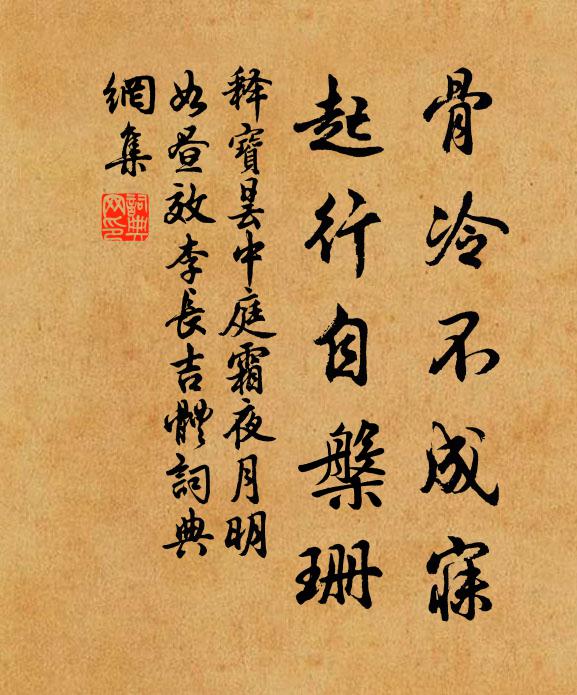 骨冷不成寐
起行自槃珊
釋寶曇中庭霜夜月明
如晝效李長吉體詞典
網集
詞典網印